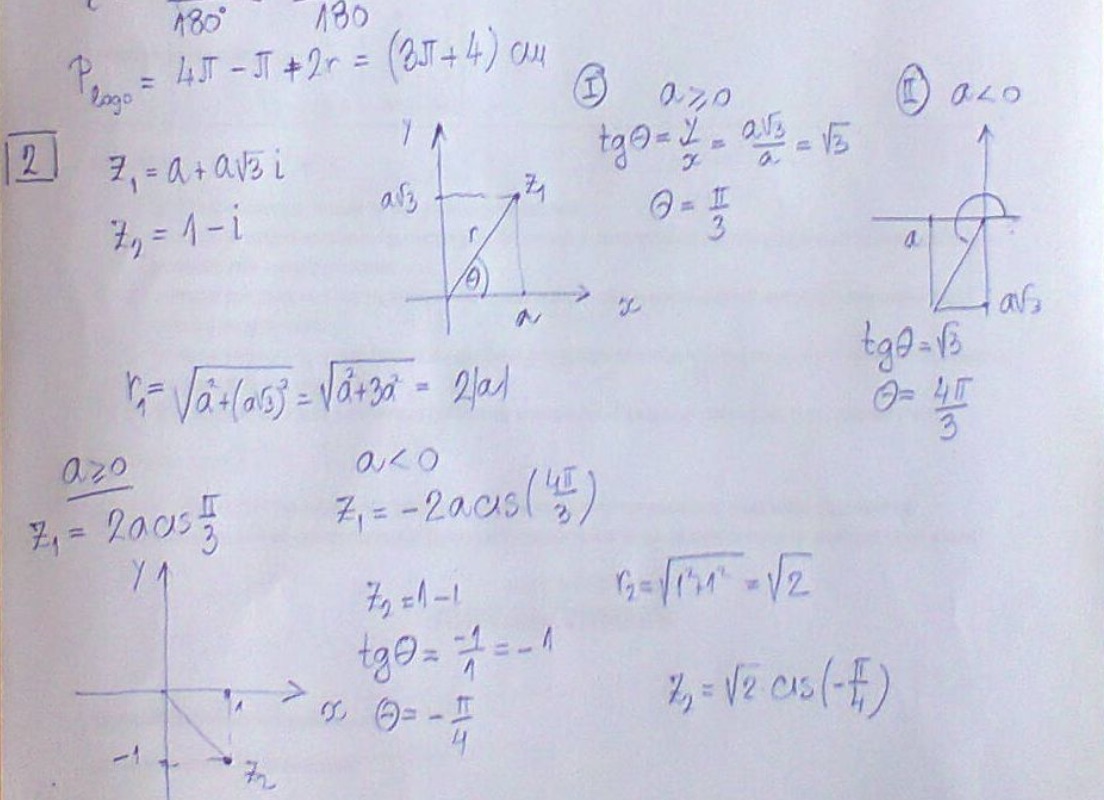 180° 180
P_logo = 4π - π + 2r = (3π+4) cm
2
z₁ = a + a√3 i
z₂ = 1 - i
y
a√3
z₁
r
θ
a
x
I a ≥ 0
tgθ = y/x = a√3/a = √3
θ = π/3
II a < 0
a
a√3
tgθ = √3
θ = 4π/3
r₁ = √(a² + (a√3)²) = √(a² + 3a²) = 2|a|
a ≥ 0
z₁ = 2a cis π/3
a < 0
z₁ = -2a cis(4π/3)
y
1
x
-1
z₂
z₂ = 1 - i
tgθ = -1/1 = -1
θ = -π/4
r₂ = √(1² + 1²) = √2
z₂ = √2 cis(-π/4)